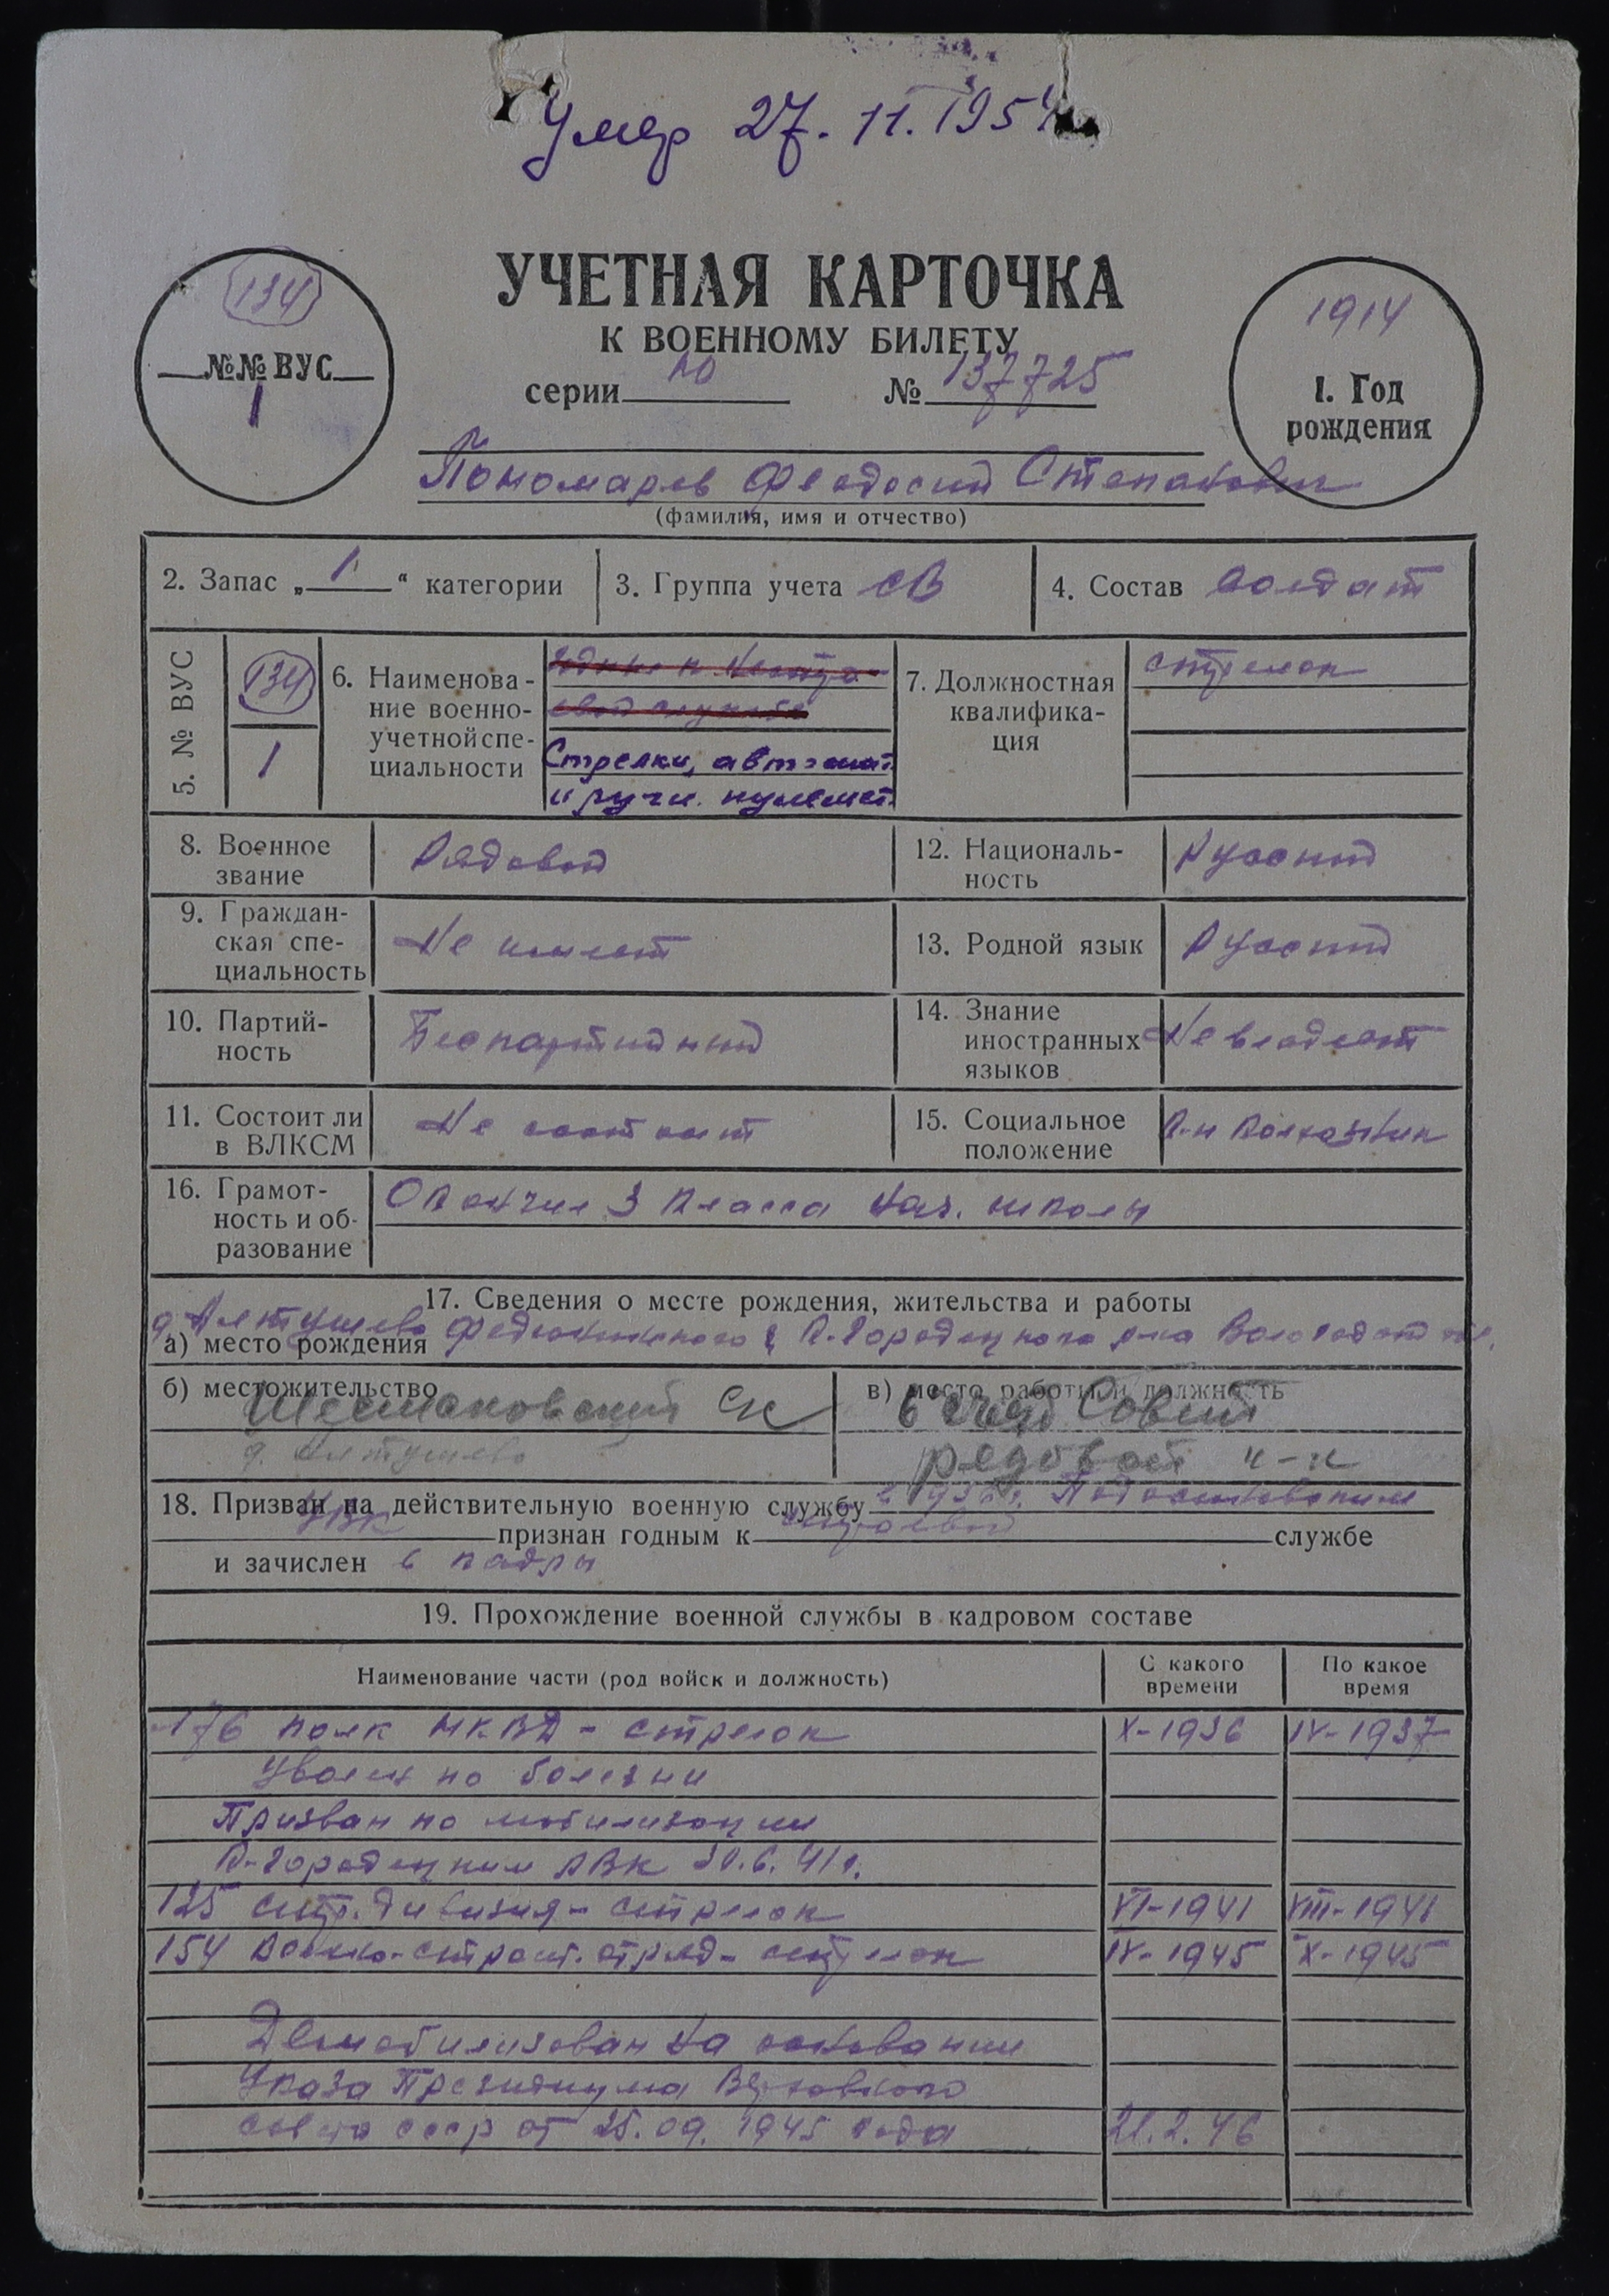 Умер 27.11.1954
УЧЕТНАЯ КАРТОЧКА
К ВОЕННОМУ БИЛЕТУ
серии № 137725
134
№№ ВУС
1
1914
1. Год
рождения
Пономарев Феодосий Степанович
(фамилия, имя и отчество)
2. Запас „ 1 “ категории
3. Группа учета СВ
4. Состав Солдат
5. № ВУС
134
1
6. Наименова-
ние военно-
учетной спе-
циальности
Стрелки, автомат.
и ручн. пулемет.
7. Должностная
квалифика-
ция
стрелок
8. Военное
звание
Рядовой
12. Националь-
ность
Русский
9. Граждан-
ская спе-
циальность
Не имеет
13. Родной язык
Русский
10. Партий-
ность
Беспартийный
14. Знание
иностранных
языков
Не владеет
11. Состоит ли
в ВЛКСМ
Не состоит
15. Социальное
положение
К-н колхозник
16. Грамот-
ность и об-
разование
Окончил 3 класса нач. школы
17. Сведения о месте рождения, жительства и работы
а) место рождения д. Алтушево К-Городецкого р-на Вологодской обл.
б) местожительство
Шестаковский с/с
д. Алтушево
в) место работы и должность
рядовой к-к
18. Призван на действительную военную службу в 1936 г.
РВК признан годным к строевой службе
и зачислен в кадры
19. Прохождение военной службы в кадровом составе
Наименование части (род войск и должность)
С какого
времени
По какое
время
176 полк НКВД - стрелок X-1936 IV-1937
Уволен по болезни
Призван по мобилизации
К-Городецким РВК 30.6.41 г.
125 стр. дивизия - стрелок VI-1941 VIII-1941
154 Военно-строит. отряд - стрелок IV-1945 X-1945
Демобилизован на основании
Указа Президиума Верховного
совета СССР от 25.09.1945 года 21.2.46